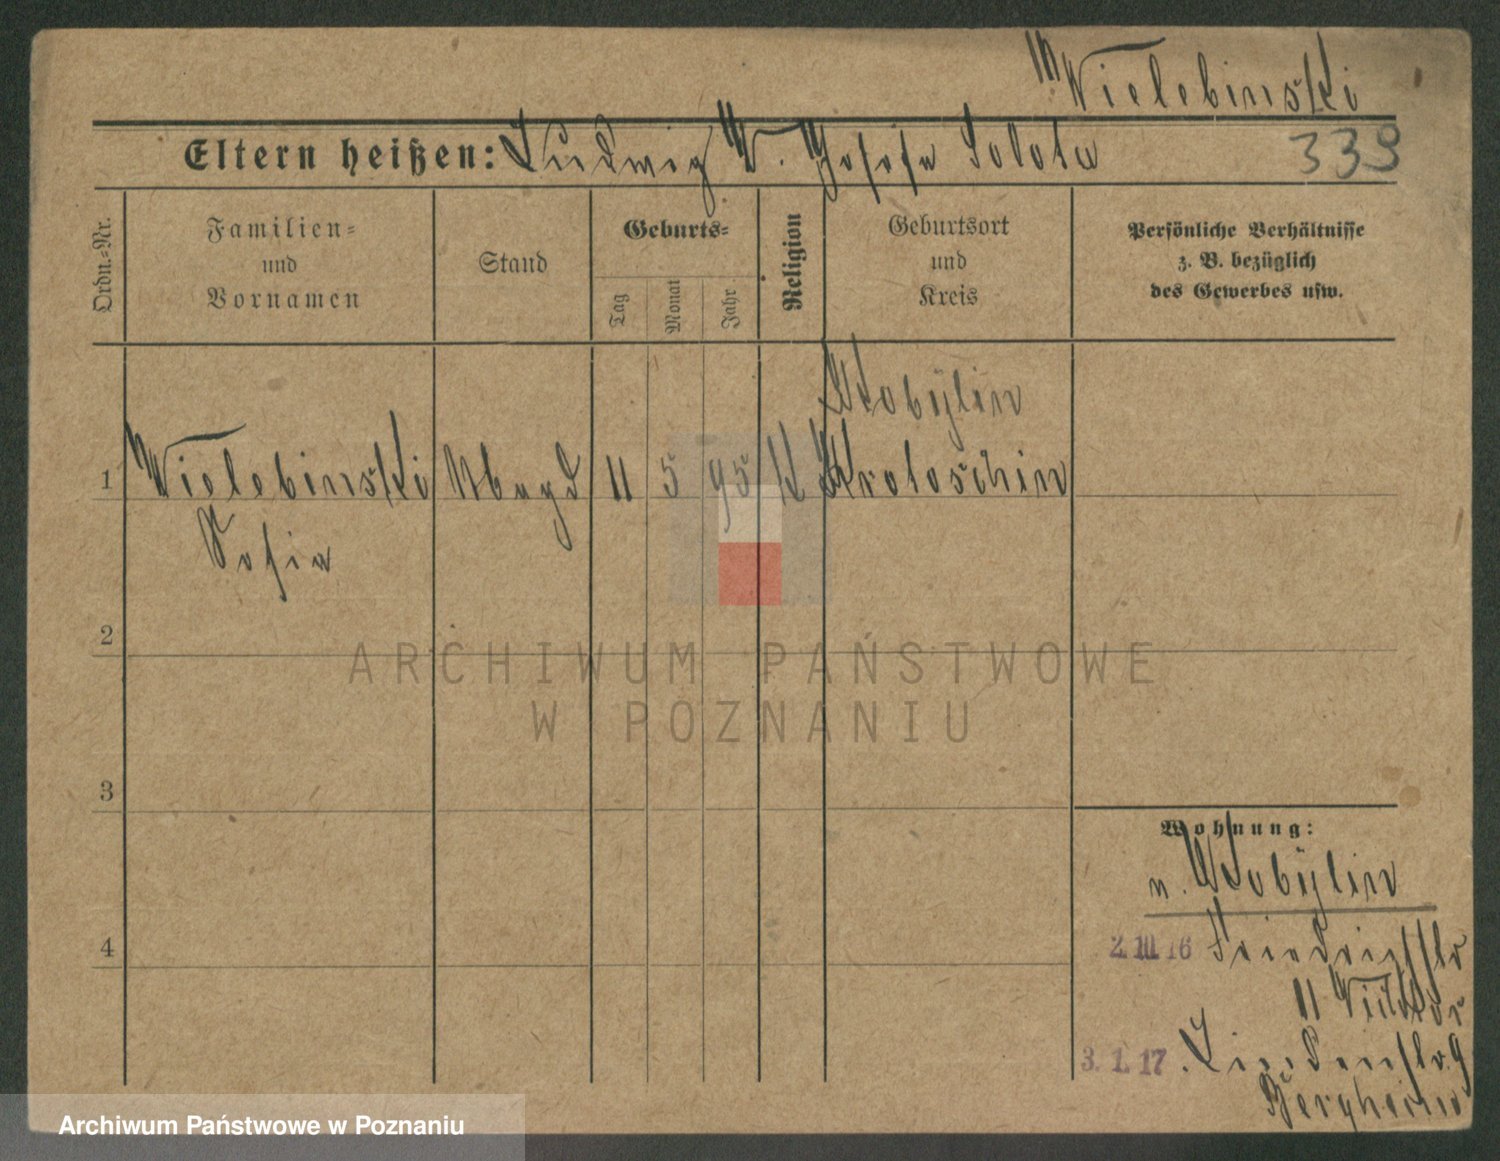 Wielebinski
Eltern heißen: Ludwig W. Josefa Solota
339
Ordn.-Nr.
Familien-
und
Vornamen
Stand
Geburts-
Tag
Monat
Jahr
Religion
Geburtsort
und
Kreis
Persönliche Verhältnisse
z. B. bezüglich
des Gewerbes usw.
Kobylin
1 Wielebinski 11 5 95 K Krotoschin
Sofia
2
3
4
Wohnung:
n. Kobylin
2. III. 16 Friedrichstr
11
3. 1. 17 Lindenstr. 9
Bergheim
ARCHIWUM PAŃSTWOWE
W POZNANIU
Archiwum Państwowe w Poznaniu